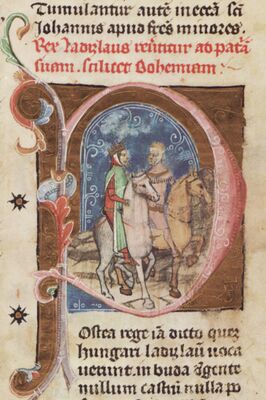 Tumulantur autē in ecciā scī
Johannis apud frēs minores.
Rex Ladizlaus reūtitur ad patriā
suam. scilicet Bohemiam:
POstea rege iā dicto quez
hungari ladizlaū uoca
uerunt. in buda agente
nullum castrū nulla po